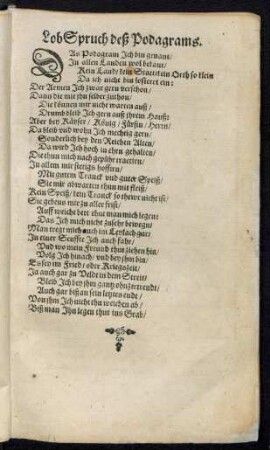 Lob Spruch deß Podagrams.
DAs Podagram Ich bin genant/
In allen Landen wol bekant/
Kein Landt/ kein Statt/ kein Orth so klein
Da ich nicht bin losieret ein:
Der Armen Ich zwar gern verschon/
Dann die mir thu selber zuthon/
Die können mir nicht warten auß/
Drumb bleib Ich gern auß ihrem Hauß:
Aber bey Käyser/ König/ Fürstn/ Herrn/
Da bleib vnd wohn Ich mechtig gern/
Sonderlich bey den Reichen Alten/
Da wird Ich hoch in ehrn gehalten/
Die thun mich nach gepühr tractirn/
In allem mir stetigs hoffirn/
Mit gutem Tranck vnd guter Speiß/
Sie mir abwarten thun mit fleiß/
Kein Speiß/ kein Tranck so thewr nicht ist/
Sie gebens mir zu aller frist/
Auff weiche bett thut man mich legen/
Das Ich mich nicht zu sehr bewegn/
Man tregt mich auch im Leylach gar/
In einer Senffte Ich auch fahr/
Vnd wo mein Freund thut ziehen hin/
Volg Ich hinach/ vnd bey ihm bin/
Es sey im Fried/ oder Kriegszeit/
Ja auch gar zu Veldt in dem Streit/
Bleib Ich bey ihm gantz ohnzertrendt/
Auch gar biß an sein letztes endt/
Von ihm Ich nicht thu weichen ab/
Biß man Ihn legen thut ins Grab/